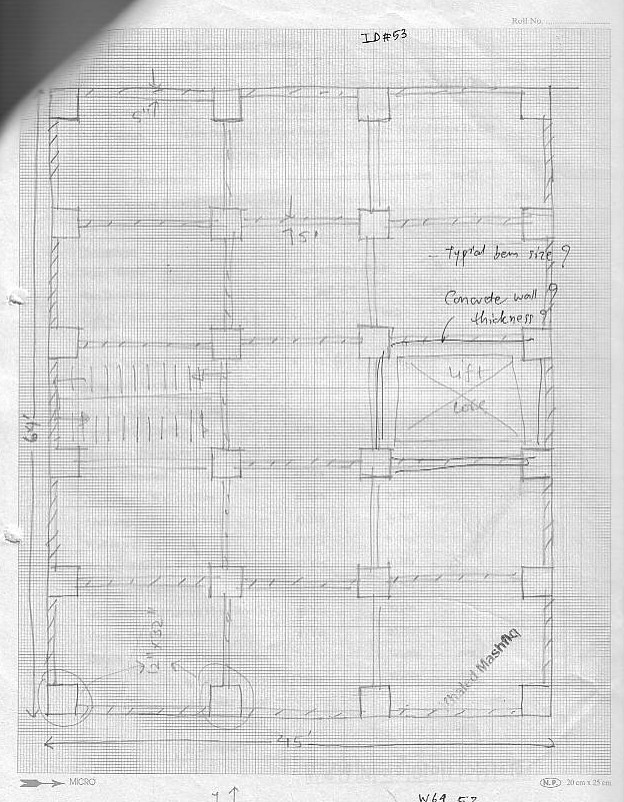 Roll No.
ID#53
5"
5"
- Typial bem size ?
Concrete wall ?
thickness ?
Lift
Core
64'
12"x32"
Khaled Mashfiq
45'
MICRO
N.P. 20 cm x 25 cm